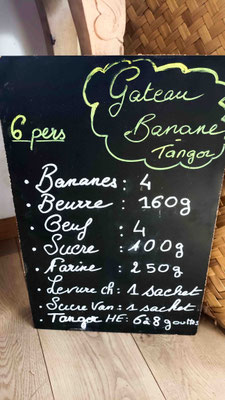 Gateau
Banane
- Tangor
6 pers
• Bananes : 4
• Beurre : 160g
• Oeuf : 4
• Sucre : 100g
• Farine : 250g
• Levure ch : 1 sachet
• Sucre Van : 1 sachet
• Tangor HE : 6 à 8 gouttes